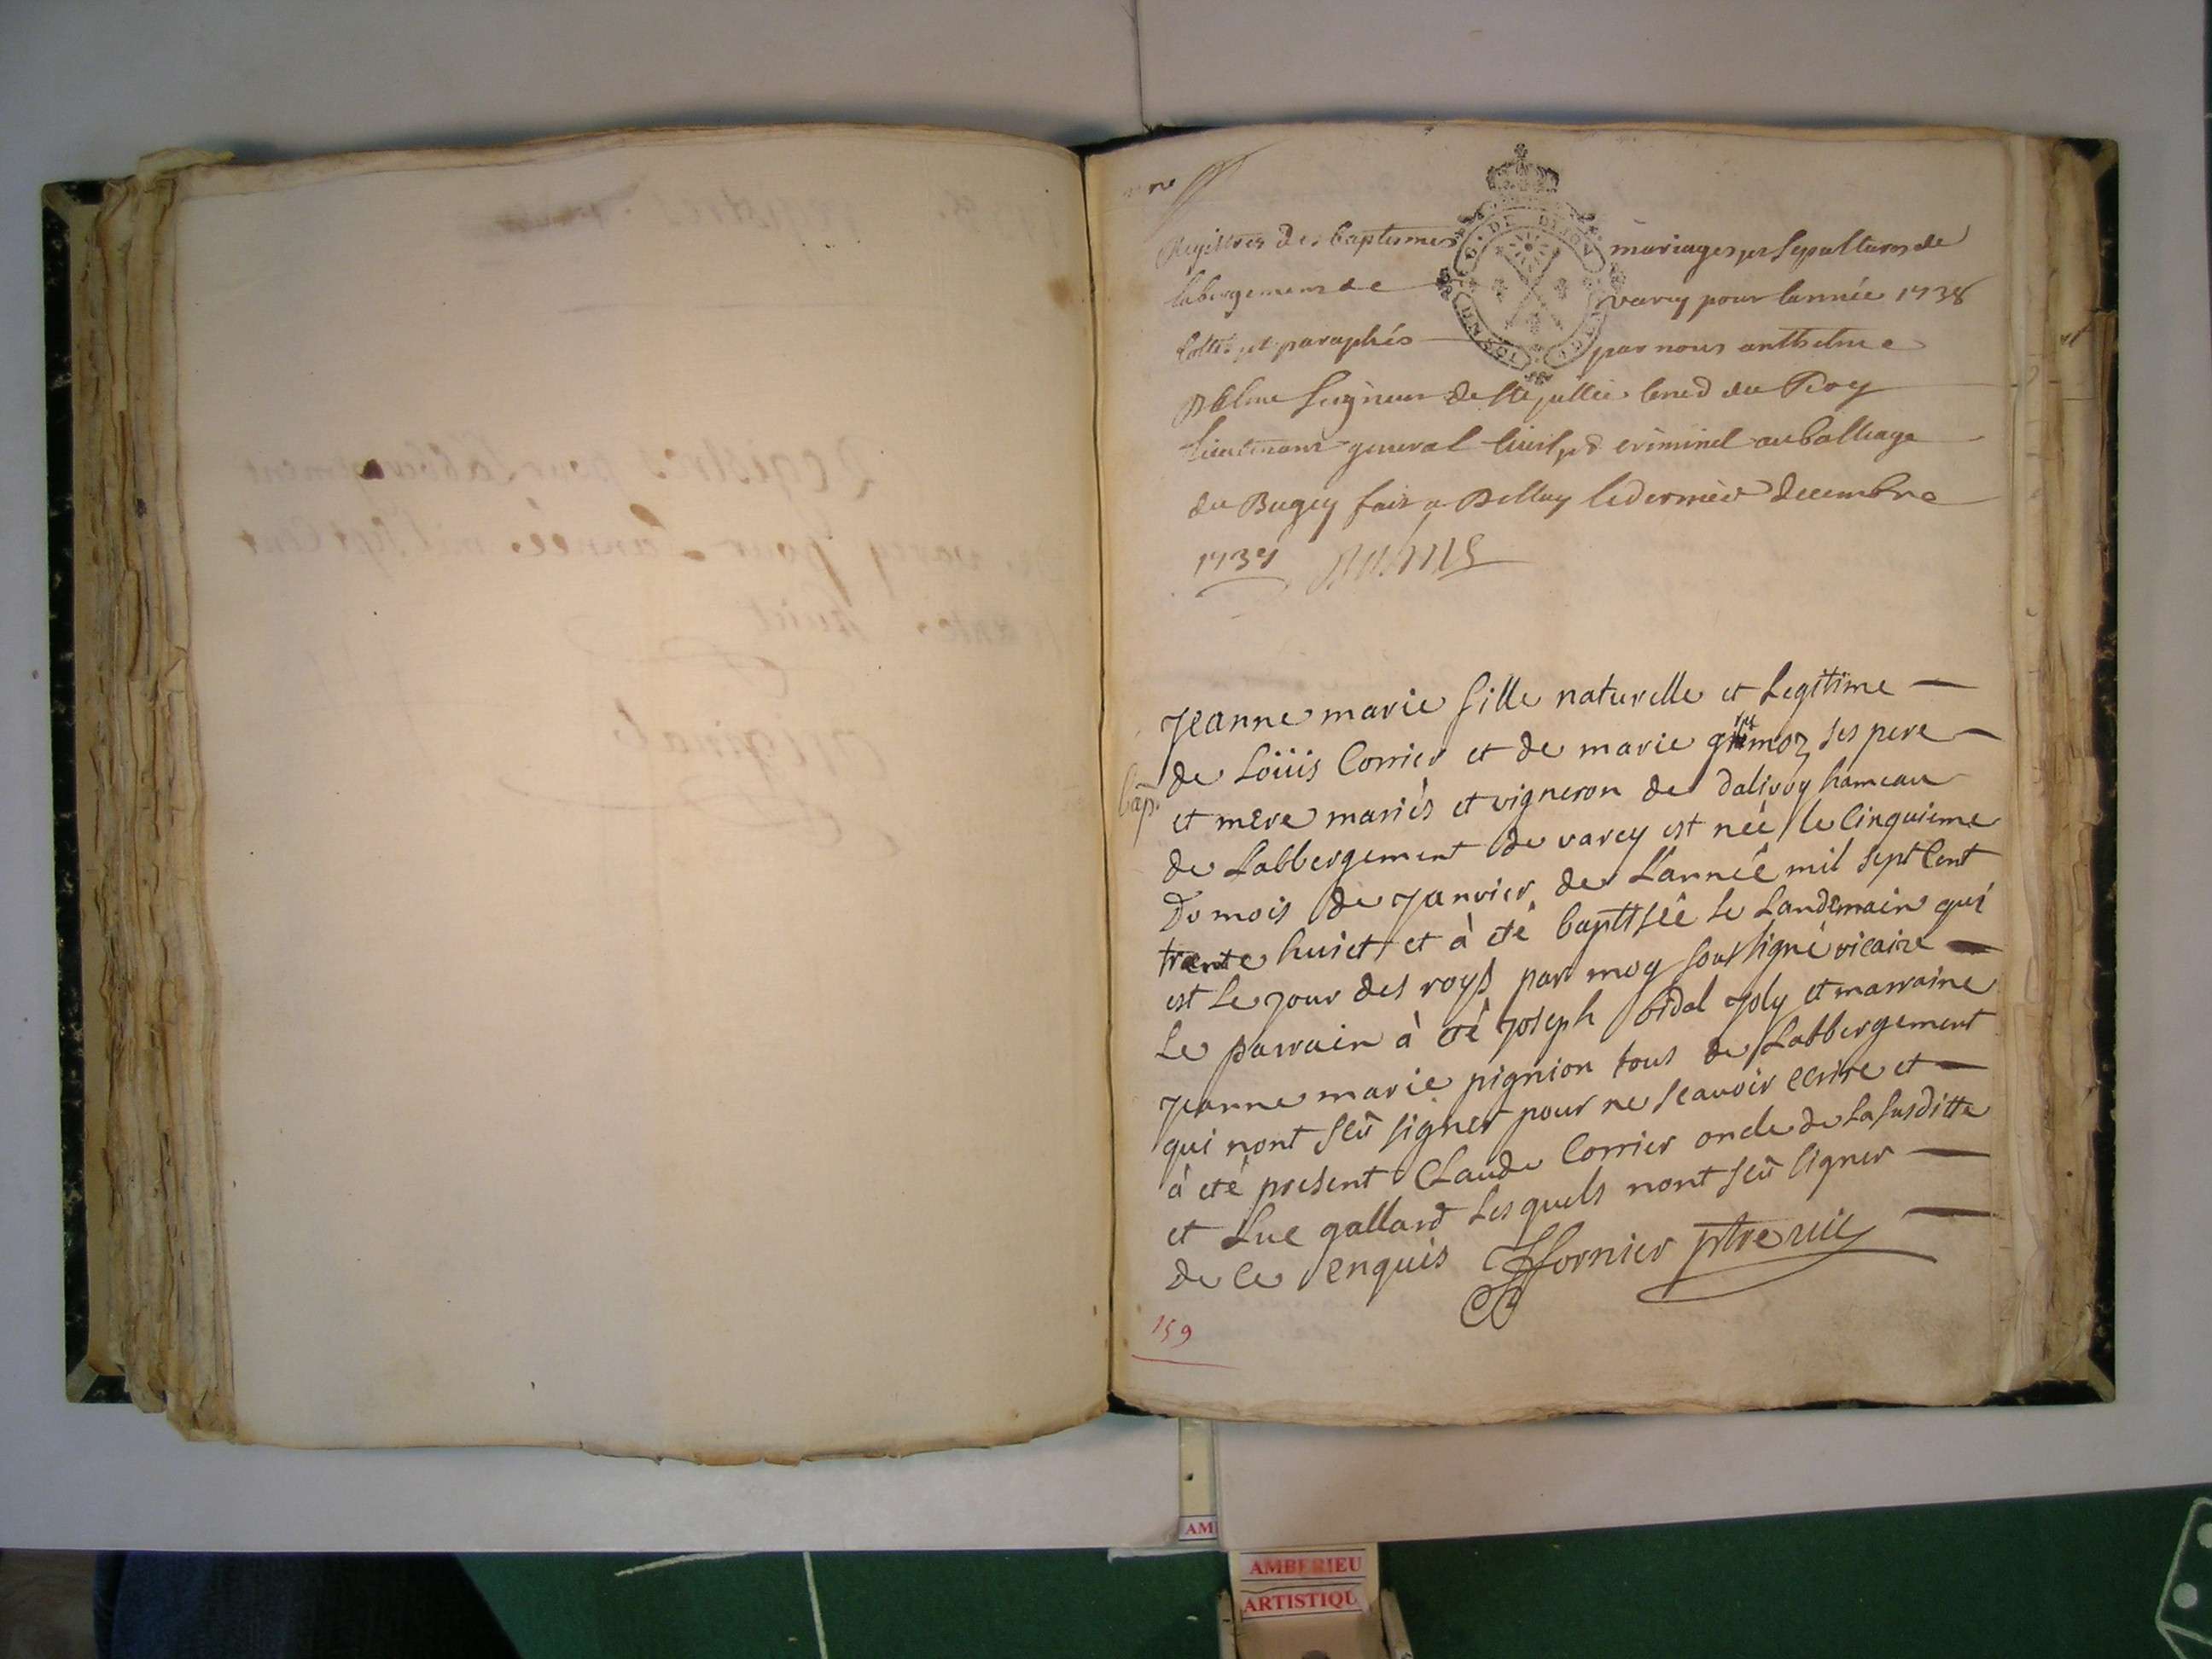 Registres des baptesmes mariages et sepultures de
labergement de varey pour lannée 1738
Cottés et paraphés par nous anthelme
seigneur de Ste jullie Coner du Roy
Lieutenant general Civil et criminel au balliage
du Bugey fait a Belley le dernier decembre
1737
Jeanne marie fille naturelle et Legitime
de Loüis Corrier et de marie ses pere
bap.
et mere mariés et vigneron de dalivoy hameau
de Labbergement de varey est née le Cinquieme
Du mois de Janvier de L'année mil sept Cent
trente huict et à eté baptisée le Landemain qui
est Le jour des roys par moy soussigné vicaire
Le parrain à eté joseph vidal joly et marraine
jeanne marie pignion tous de Labbergement
qui nont sçû signer pour ne sçavoir ecrire et
à eté present Claude Corrier oncle de La susditte
et Luc gallard Lesquels nont sçû signer
de ce enquis fornier ptre vic
159
DE DIJON
UN SOL
AM
AMBERIEU
ARTISTIQU